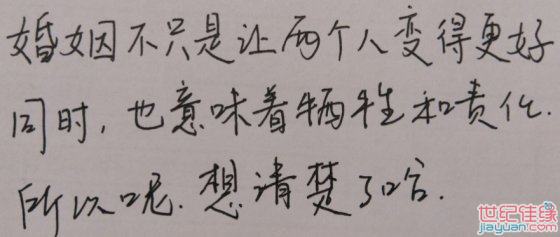 婚姻不只是让两个人变得更好
同时,也意味着牺牲和责任.
所以呢.想清楚了哈.
世纪佳缘
jiayuan.com